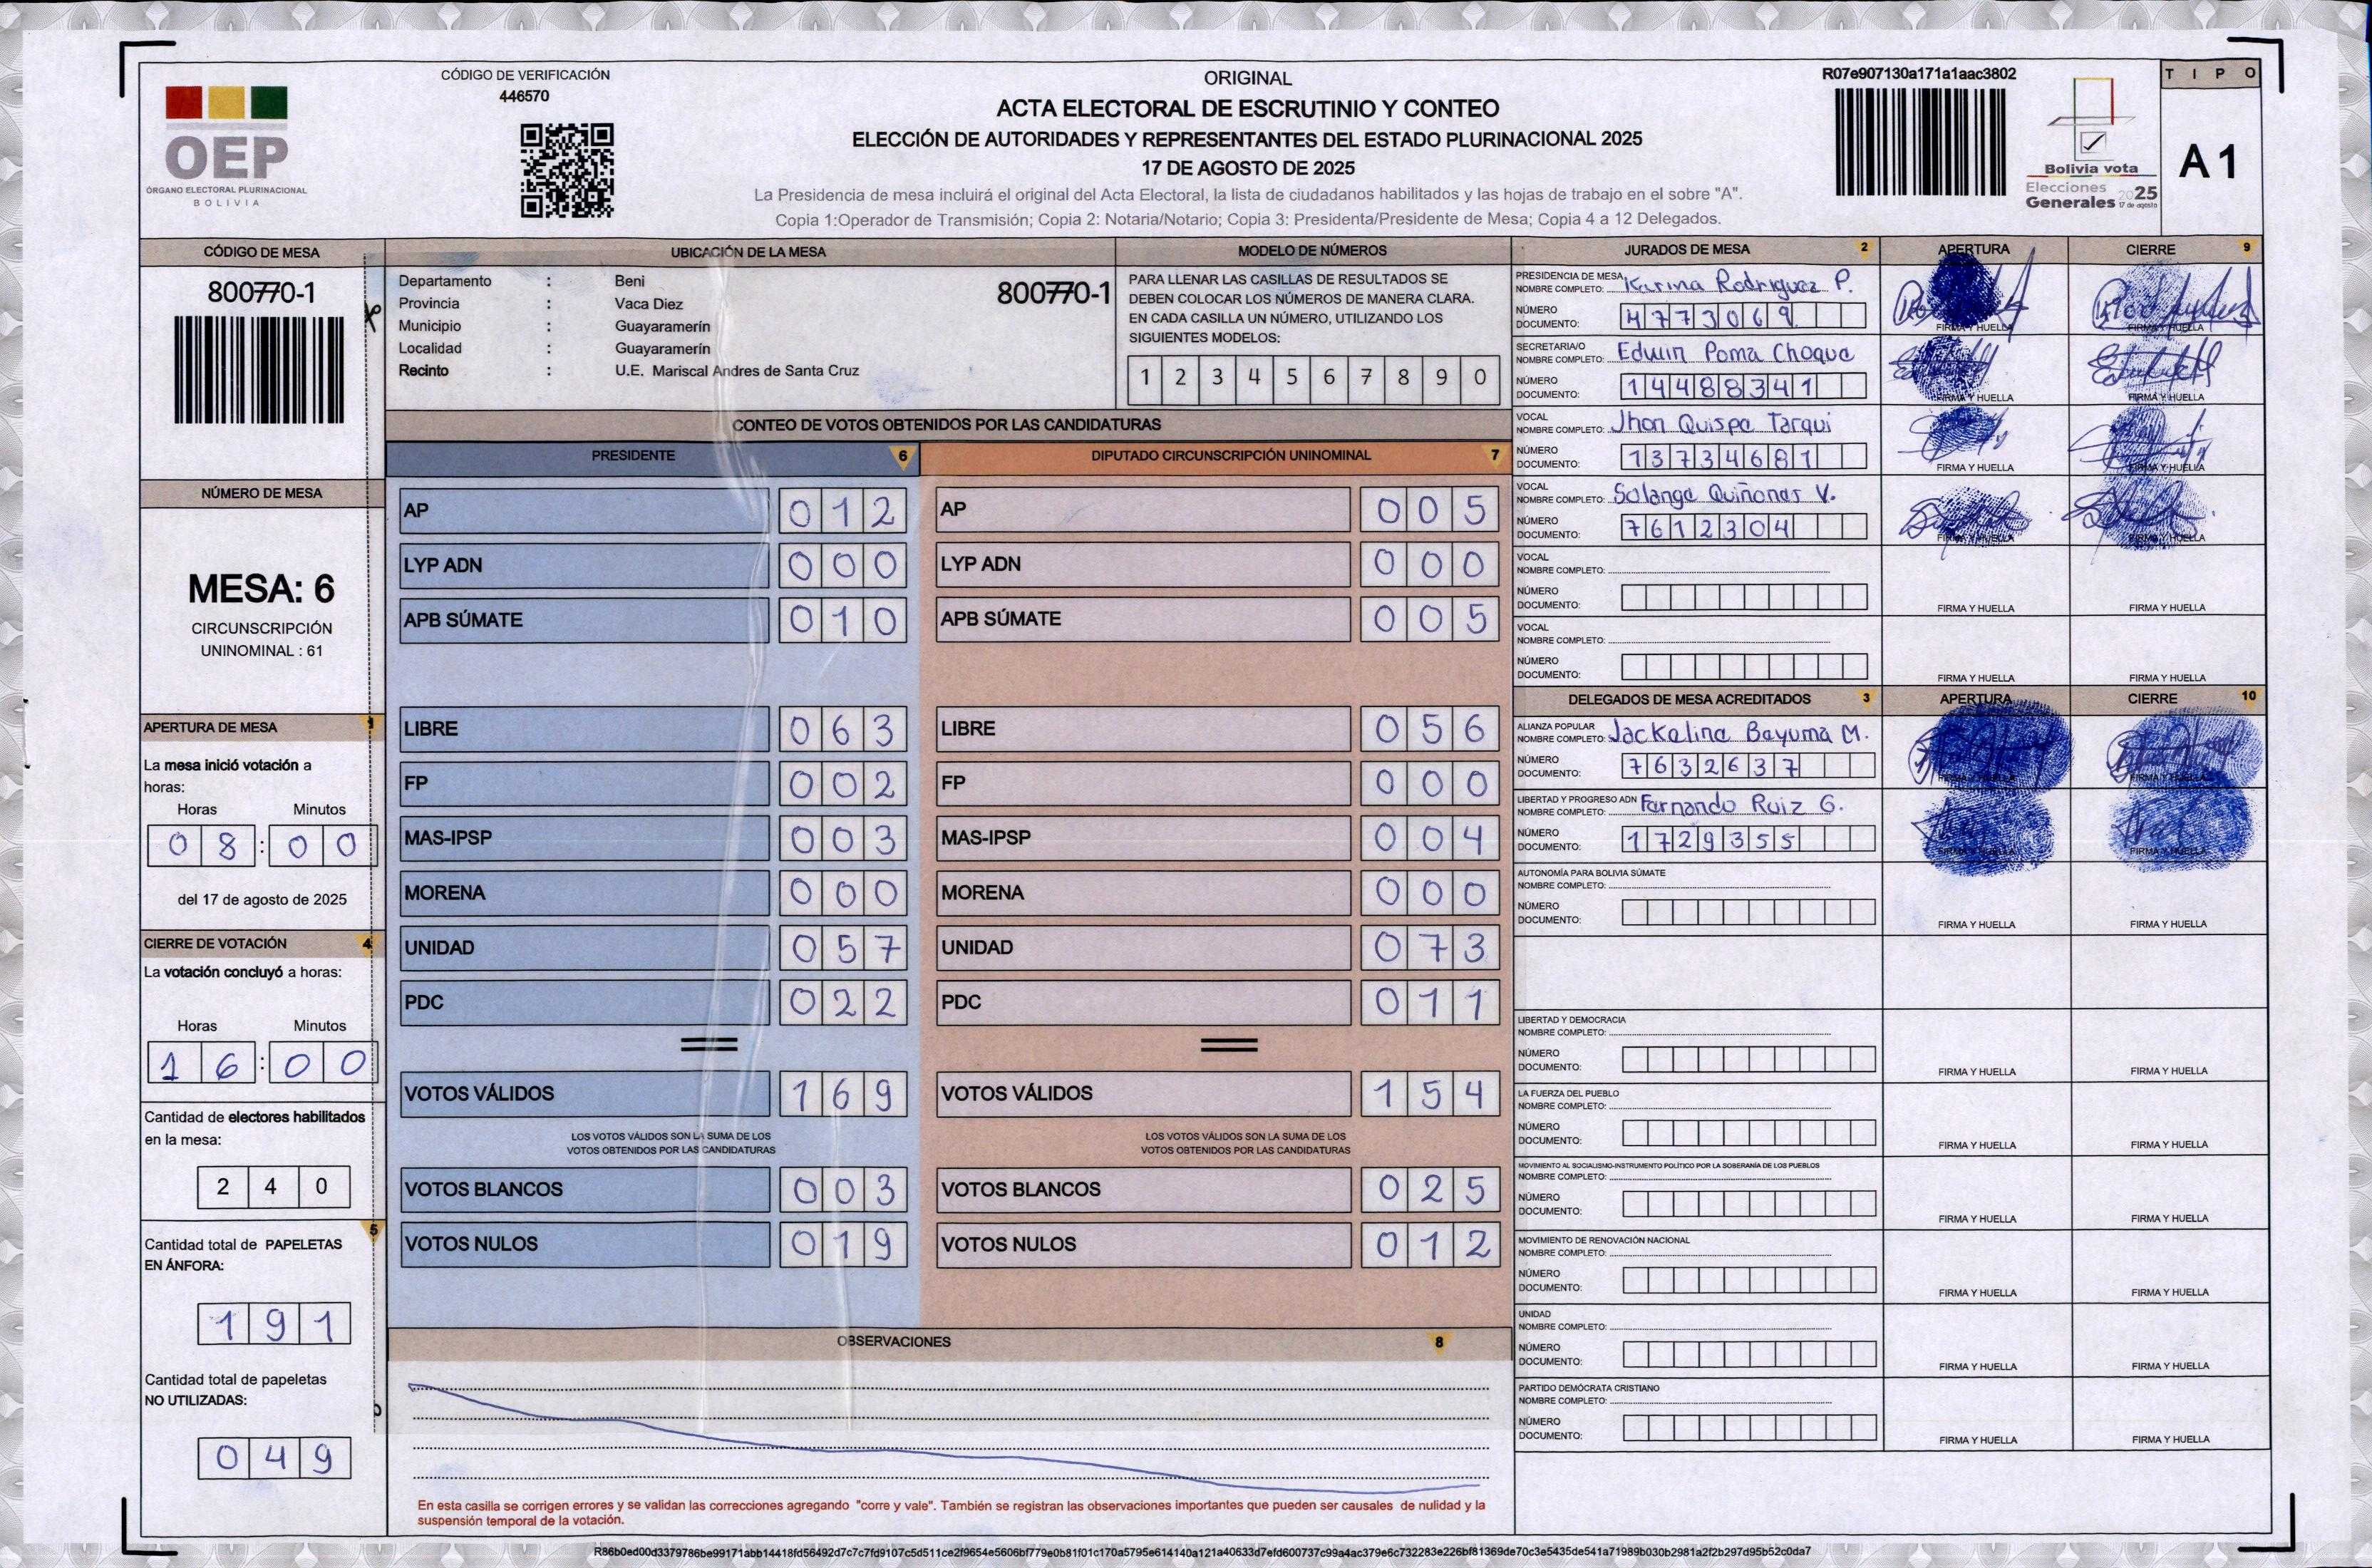 CÓDIGO DE VERIFICACIÓN
446570
OEP
ÓRGANO ELECTORAL PLURINACIONAL
BOLIVIA
ORIGINAL
ACTA ELECTORAL DE ESCRUTINIO Y CONTEO
ELECCIÓN DE AUTORIDADES Y REPRESENTANTES DEL ESTADO PLURINACIONAL 2025
17 DE AGOSTO DE 2025
La Presidencia de mesa incluirá el original del Acta Electoral, la lista de ciudadanos habilitados y las hojas de trabajo en el sobre "A".
Copia 1:Operador de Transmisión; Copia 2: Notaria/Notario; Copia 3: Presidenta/Presidente de Mesa; Copia 4 a 12 Delegados.
R07e907130a171a1aac3802
Bolivia vota
Elecciones
Generales 2025
17 de agosto
TIPO
A1
CÓDIGO DE MESA
800770-1
NÚMERO DE MESA
MESA: 6
CIRCUNSCRIPCIÓN
UNINOMINAL : 61
APERTURA DE MESA 1
La mesa inició votación a
horas:
Horas Minutos
08:00
del 17 de agosto de 2025
CIERRE DE VOTACIÓN 4
La votación concluyó a horas:
Horas Minutos
16:00
Cantidad de electores habilitados
en la mesa:
240
5
Cantidad total de PAPELETAS
EN ÁNFORA:
191
Cantidad total de papeletas
NO UTILIZADAS:
049
UBICACIÓN DE LA MESA
Departamento : Beni
Provincia : Vaca Diez
Municipio : Guayaramerín
Localidad : Guayaramerín
Recinto : U.E. Mariscal Andres de Santa Cruz
800770-1
MODELO DE NÚMEROS
PARA LLENAR LAS CASILLAS DE RESULTADOS SE
DEBEN COLOCAR LOS NÚMEROS DE MANERA CLARA.
EN CADA CASILLA UN NÚMERO, UTILIZANDO LOS
SIGUIENTES MODELOS:
1 2 3 4 5 6 7 8 9 0
CONTEO DE VOTOS OBTENIDOS POR LAS CANDIDATURAS
PRESIDENTE 6
AP 012
LYP ADN 000
APB SÚMATE 010
LIBRE 063
FP 002
MAS-IPSP 003
MORENA 000
UNIDAD 057
PDC 022
VOTOS VÁLIDOS 169
LOS VOTOS VÁLIDOS SON LA SUMA DE LOS
VOTOS OBTENIDOS POR LAS CANDIDATURAS
VOTOS BLANCOS 003
VOTOS NULOS 019
DIPUTADO CIRCUNSCRIPCIÓN UNINOMINAL 7
AP 005
LYP ADN 000
APB SÚMATE 005
LIBRE 056
FP 000
MAS-IPSP 004
MORENA 000
UNIDAD 073
PDC 011
VOTOS VÁLIDOS 154
LOS VOTOS VÁLIDOS SON LA SUMA DE LOS
VOTOS OBTENIDOS POR LAS CANDIDATURAS
VOTOS BLANCOS 025
VOTOS NULOS 012
OBSERVACIONES 8
En esta casilla se corrigen errores y se validan las correcciones agregando "corre y vale". También se registran las observaciones importantes que pueden ser causales de nulidad y la
suspensión temporal de la votación.
JURADOS DE MESA 2 APERTURA CIERRE 9
PRESIDENCIA DE MESA
NOMBRE COMPLETO: Karina Rodriguez P.
NÚMERO
DOCUMENTO: 4773069
FIRMA Y HUELLA FIRMA Y HUELLA
SECRETARIA/O
NOMBRE COMPLETO: Edwin Poma Choque
NÚMERO
DOCUMENTO: 14488341
FIRMA Y HUELLA FIRMA Y HUELLA
VOCAL
NOMBRE COMPLETO: Jhon Quispe Tarqui
NÚMERO
DOCUMENTO: 13734681
FIRMA Y HUELLA FIRMA Y HUELLA
VOCAL
NOMBRE COMPLETO: Solange Quiñones V.
NÚMERO
DOCUMENTO: 7612304
FIRMA Y HUELLA FIRMA Y HUELLA
VOCAL
NOMBRE COMPLETO:
NÚMERO
DOCUMENTO:
FIRMA Y HUELLA FIRMA Y HUELLA
VOCAL
NOMBRE COMPLETO:
NÚMERO
DOCUMENTO:
FIRMA Y HUELLA FIRMA Y HUELLA
DELEGADOS DE MESA ACREDITADOS 3 APERTURA CIERRE 10
ALIANZA POPULAR
NOMBRE COMPLETO: Jackeline Bayuma M.
NÚMERO
DOCUMENTO: 7632637
FIRMA Y HUELLA FIRMA Y HUELLA
LIBERTAD Y PROGRESO ADN
NOMBRE COMPLETO: Fernando Ruiz G.
NÚMERO
DOCUMENTO: 1729355
FIRMA Y HUELLA FIRMA Y HUELLA
AUTONOMÍA PARA BOLIVIA SÚMATE
NOMBRE COMPLETO:
NÚMERO
DOCUMENTO:
FIRMA Y HUELLA FIRMA Y HUELLA
LIBERTAD Y DEMOCRACIA
NOMBRE COMPLETO:
NÚMERO
DOCUMENTO:
FIRMA Y HUELLA FIRMA Y HUELLA
LA FUERZA DEL PUEBLO
NOMBRE COMPLETO:
NÚMERO
DOCUMENTO:
FIRMA Y HUELLA FIRMA Y HUELLA
MOVIMIENTO AL SOCIALISMO-INSTRUMENTO POLÍTICO POR LA SOBERANÍA DE LOS PUEBLOS
NOMBRE COMPLETO:
NÚMERO
DOCUMENTO:
FIRMA Y HUELLA FIRMA Y HUELLA
MOVIMIENTO DE RENOVACIÓN NACIONAL
NOMBRE COMPLETO:
NÚMERO
DOCUMENTO:
FIRMA Y HUELLA FIRMA Y HUELLA
UNIDAD
NOMBRE COMPLETO:
NÚMERO
DOCUMENTO:
FIRMA Y HUELLA FIRMA Y HUELLA
PARTIDO DEMÓCRATA CRISTIANO
NOMBRE COMPLETO:
NÚMERO
DOCUMENTO:
FIRMA Y HUELLA FIRMA Y HUELLA